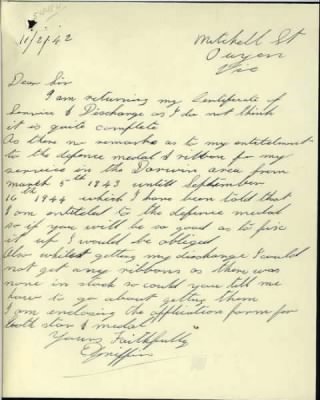 11/2/42
Mitchell St
Ouyen
Vic
Dear Sir
I am returning my Certificate of
Service & Discharge as I do not think
it is quite complete
As there no remarks as to my entitelment
to the defence medal & ribbon for my
service in the Darwin area from
march 5th 1943 untill September
16th 1944 which I have been told that
I am entiteled to the defence medal
so if you will be so good as to fixe
it up I would be obliged
Also whilst getting my discharge I could
not get any ribbons as there was
none in stock so could you tell me
how to go about getting them
I am enclosing the application form for
both star & medal
Yours Faithfully
Griffin